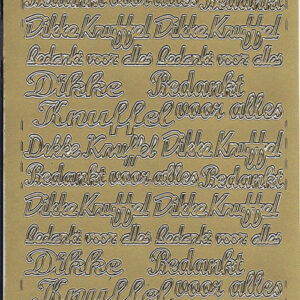 Bedankt voor alles Bedankt
Dikke Knuffel Dikke Knuffel
Bedankt voor alles Bedankt voor alles
Dikke Bedankt
Knuffel voor alles
Dikke Knuffel Dikke Knuffel
Bedankt voor alles Bedankt
Dikke Knuffel Dikke Knuffel
Bedankt voor alles Bedankt voor alles
Dikke Bedankt
Knuffel voor alles